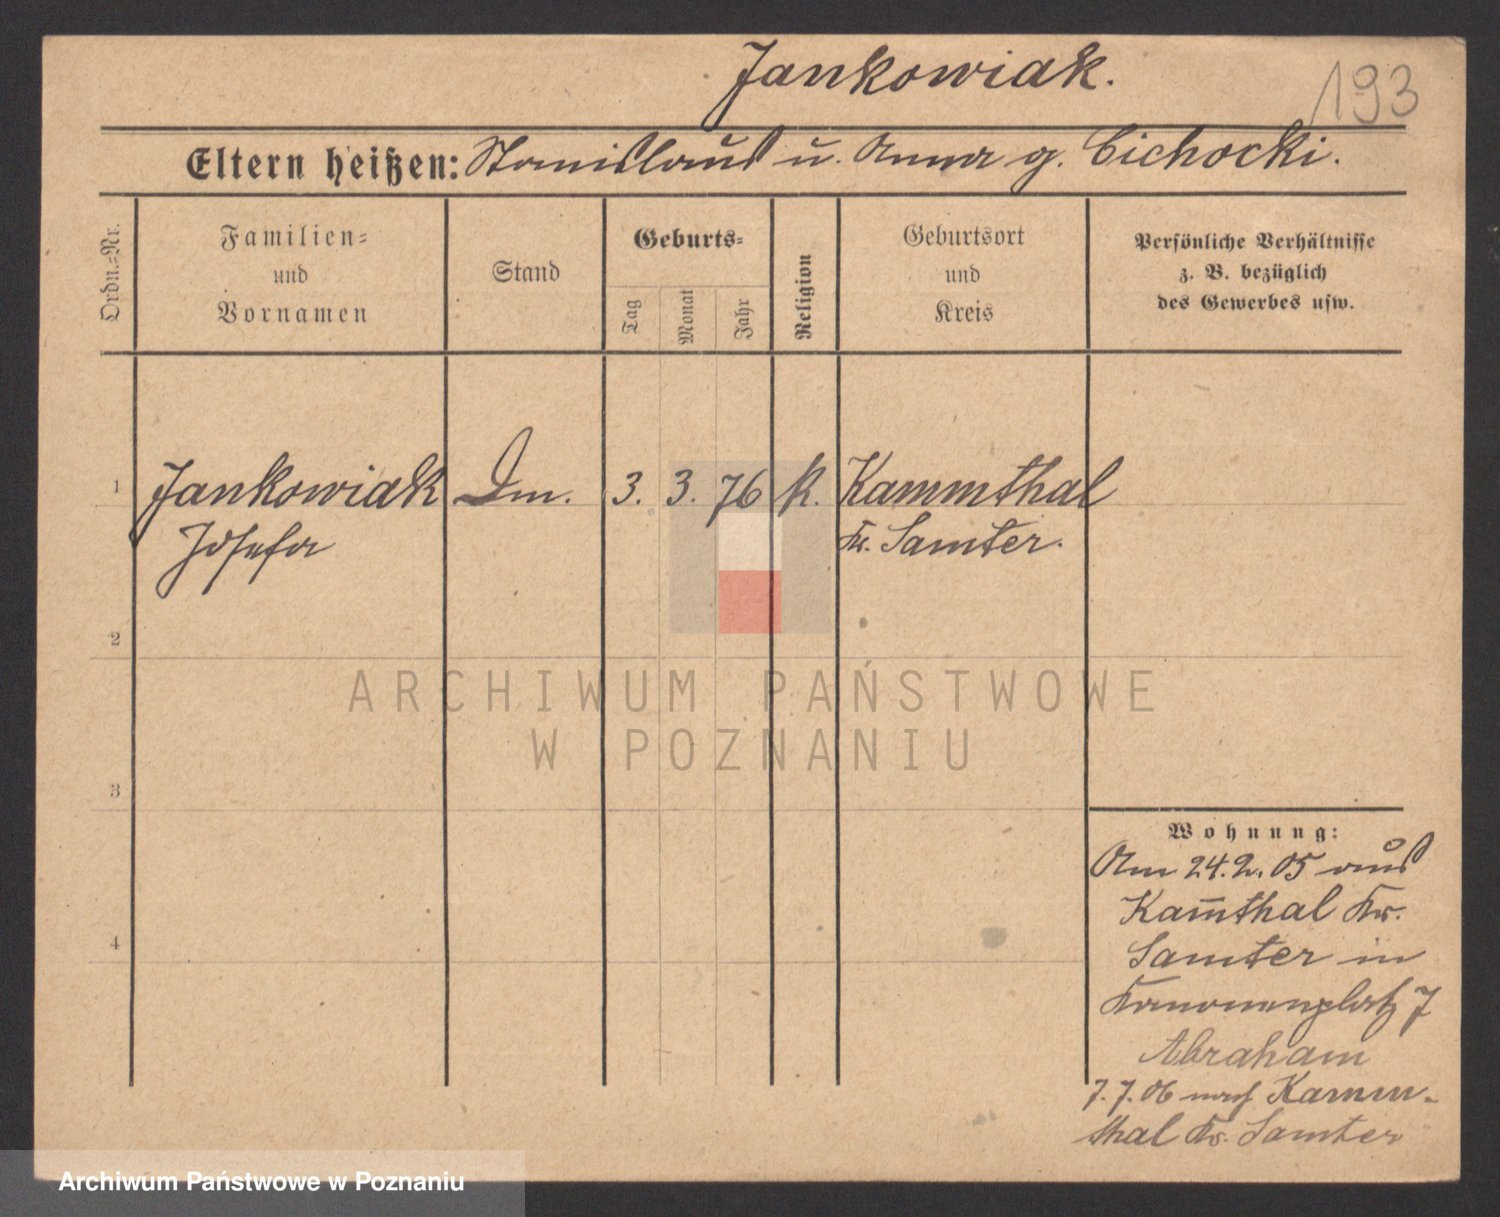 Jankowiak.
193
Eltern heißen: Stanislaus u. Anna g. Cichocki.
Ordn.=Nr.
Familien=
und
Vornamen
Stand
Geburts=
Tag
Monat
Jahr
Religion
Geburtsort
und
Kreis
Persönliche Verhältnisse
z. B. bezüglich
des Gewerbes usw.
1
Jankowiak
Josefa
Dm.
3.
3.
76
k.
Kammthal
Kr. Samter.
2
3
4
Wohnung:
Am 24.2.05 aus
Kam̅thal Kr.
Samter in
Kanonenplatz 7
Abraham
7.7.06 nach Kamm-
thal Kr. Samter
ARCHIWUM PAŃSTWOWE
W POZNANIU
Archiwum Państwowe w Poznaniu